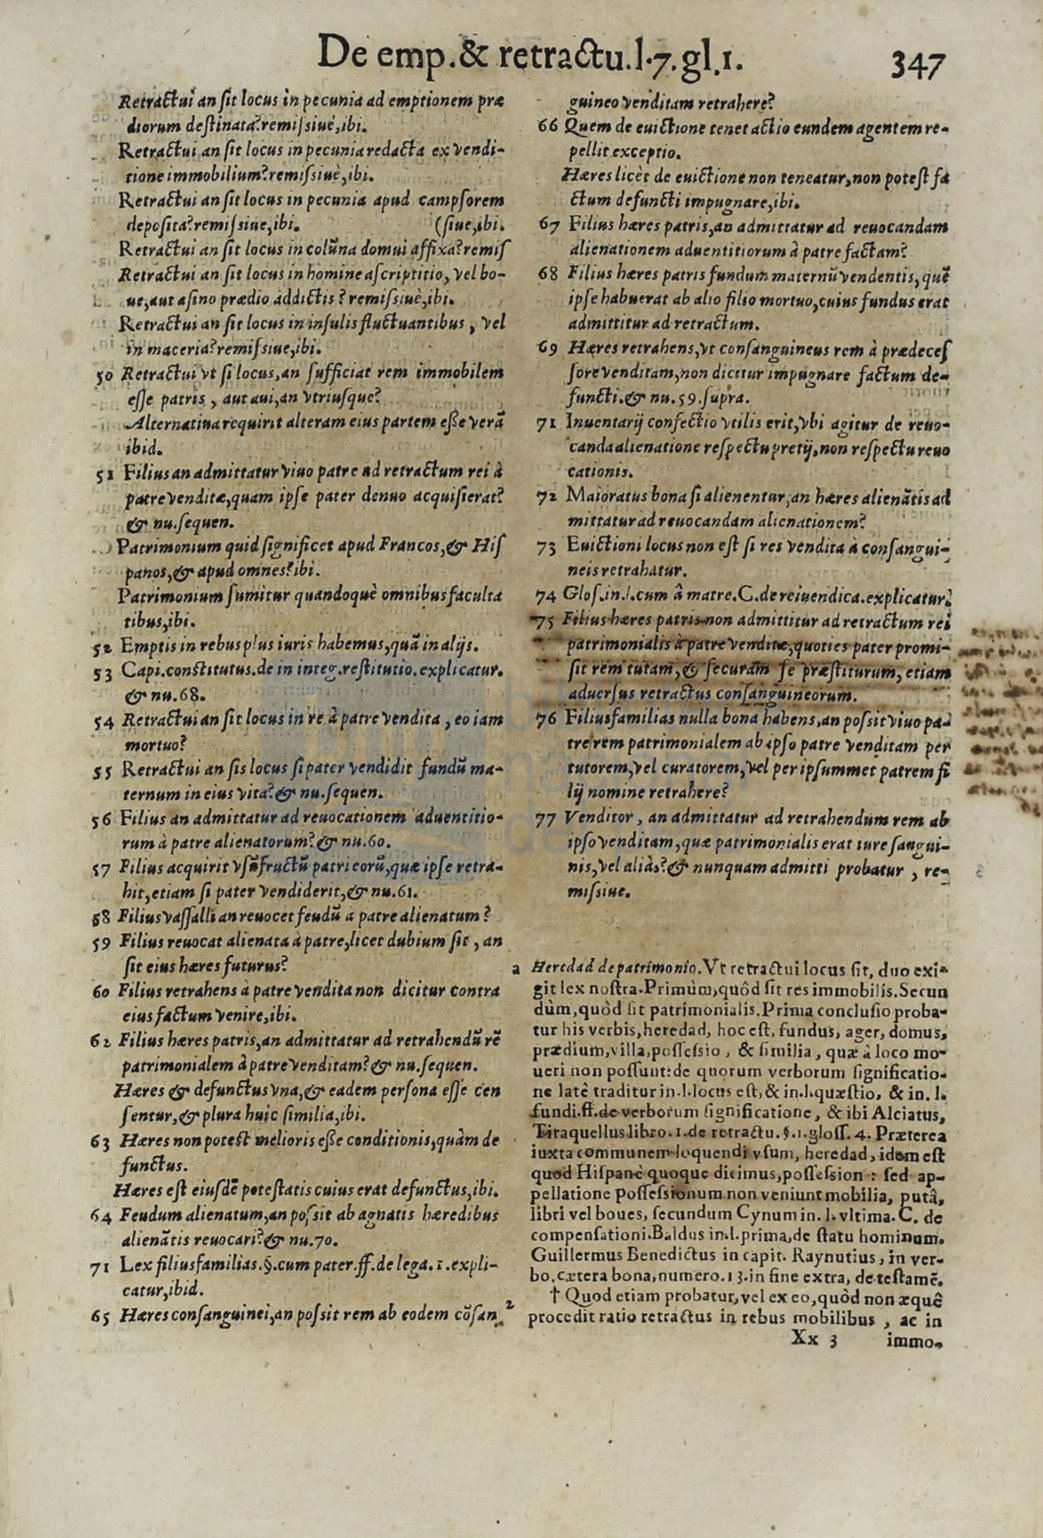 De emp.& retractu.l.7.gl.1.
347
Retractui an sit locus in pecunia ad emptionem præ
diorum destinata?remissiuè,ibi.
Retractui an sit locus in pecunia redacta ex vendi-
tione immobilium?remissiuè,ibi.
Retractui an sit locus in pecunia apud campsorem
deposita?remissiue,ibi.
(siue,ibi.
Retractui an sit locus in colũna domui affixa?remiss
Retractui an sit locus in homine ascriptitio, vel bo-
ue,aut asino prædio addictis ? remissiuè,ibi.
Retractui an sit locus in insulis fluctuantibus , vel
in maceria?remissiue,ibi.
50 Retractui vt si locus,an sufficiat rem immobilem
esse patris , aut aui,an vtriusque?
Alternatiua requirit alteram eius partem esse verã
ibid.
51 Filius an admittatur viuo patre ad retractum rei à
patre venditæ,quam ipse pater denuo acquisierat?
& nu.sequen.
Patrimonium quid significet apud Francos,& His
panos,& apud omnes?ibi.
Patrimonium sumitur quandoquè omnibus faculta
tibus,ibi.
52 Emptis in rebus plus iuris habemus,quã in alijs.
53 Capi.constitutus.de in integ.restitutio.explicatur.
& nu.68.
54 Retractui an sit locus in re à patre vendita , eo iam
mortuo?
55 Retractui an sis locus si pater vendidit fundũ ma-
ternum in eius vita?& nu.sequen.
56 Filius an admittatur ad reuocationem aduentitio-
rum à patre alienatorum?& nu.60.
57 Filius acquirit vsũfructũ patri eorũ,quæ ipse retra-
hit,etiam si pater vendiderit,& nu.61.
58 Filius vassalli an reuocet feudũ a patre alienatum ?
59 Filius reuocat alienata à patre,licet dubium sit , an
sit eius hæres futurus?
60 Filius retrahens à patre vendita non dicitur contra
eius factum venire,ibi.
62 Filius hæres patris,an admittatur ad retrahendũ rẽ
patrimonialem à patre venditam?& nu.sequen.
Hæres & defunctus vna,& eadem persona esse cen
sentur,& plura huic similia,ibi.
63 Hæres non potest melioris esse conditionis,quàm de
functus.
Hæres est eiusdẽ potestatis cuius erat defunctus,ibi.
64 Feudum alienatum,an possit ab agnatis hæredibus
alienãtis reuocari?& nu.70.
71 Lex filiusfamilias.§.cum pater.ff.de lega.1.expli-
catur,ibid.
65 Hæres consanguinei,an possit rem ab eodem cõsan
guineo venditam retrahere?
66 Quem de euictione tenet actio eundem agentem re-
pellit exceptio.
Hæres licèt de euictione non teneatur,non potest fa
ctum defuncti impugnare,ibi.
67 Filius hæres patris,an admittatur ad reuocandam
alienationem aduentitiorum à patre factam?
68 Filius hæres patris fundum maternũ vendentis, quẽ
ipse habuerat ab alio filio mortuo,cuius fundus erat
admittitur ad retractum.
69 Hæres retrahens,vt consanguineus rem à prædeces
sore venditam,non dicitur impugnare factum de-
functi.& nu.59.supra.
71 Inuentarij confectio vtilis erit,vbi agitur de reuo-
canda alienatione respectu pretij,non respectu reuo
cationis.
72 Maioratus bona si alienentur,an hæres alienãtis ad
mittatur ad reuocandam alienationem?
73 Euictioni locus non est si res vendita à consangui-
neis retrahatur.
74 Glos.in.l.cum à matre.C.de reiuendica.explicatur.
75 Filius hæres patris non admittitur ad retractum rei
patrimonialis à patre venditæ,quoties pater promi-
sit rem tutam,& securam se præstiturum, etiam
aduersus retractus consanguineorum.
76 Filiusfamilias nulla bona habens,an possit viuo pa-
tre rem patrimonialem ab ipso patre venditam per
tutorem,vel curatorem,vel per ipsummet patrem fi
lij nomine retrahere?
77 Venditor , an admittatur ad retrahendum rem ab
ipso venditam,quæ patrimonialis erat iure sangui-
nis,vel aliàs?& nunquam admitti probatur , re-
missiue.
a Heredad de patrimonio.Vt retractui locus sit, duo exi-
git lex nostra.Primùm,quòd sit res immobilis.Secun
dùm,quòd sit patrimonialis.Prima conclusio proba-
tur his verbis,heredad, hoc est, fundus, ager, domus,
prædium,villa,possessio , & similia , quæ à loco mo-
ueri non possunt:de quorum verborum significatio-
ne latè traditur in.l.locus est,& in.l.quæstio, & in. l.
fundi.ff.de verborum significatione, & ibi Alciatus,
Tiraquellus libro.1.de retractu.§.1.gloss.4. Præterea
iuxta communem loquendi vsum, heredad, idem est
quod Hispanè quoque dicimus,possession : sed ap-
pellatione possessionum non veniunt mobilia, putà,
libri vel boues, secundum Cynum in. l. vltima. C. de
compensationi.Baldus in.l.prima,de statu hominum.
Guillermus Benedictus in capit. Raynutius, in ver-
bo,cætera bona,numero.13.in fine extra, de testamẽ.
2 † Quod etiam probatur,vel ex eo,quòd non æquè
procedit ratio retractus in rebus mobilibus , ac in
Xx 3 immo-